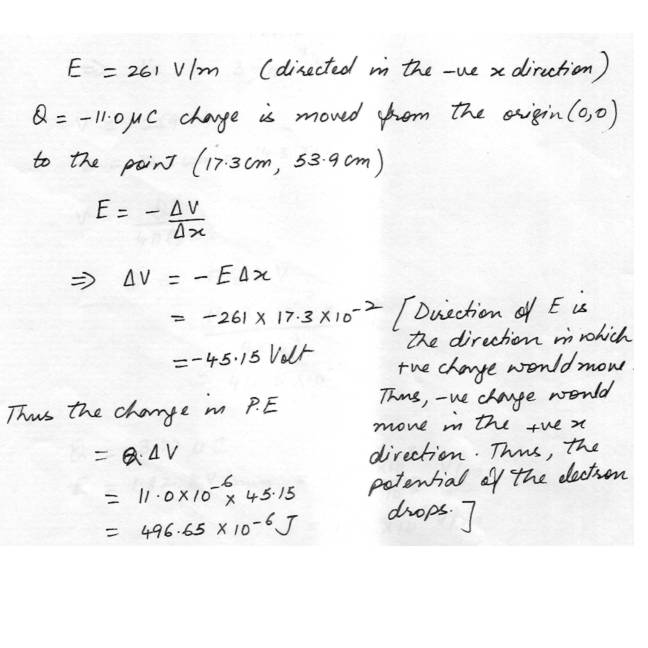 E = 261 V/m (directed in the -ve x direction)
Q = -11.0 μC charge is moved from the origin (0,0)
to the point (17.3 cm, 53.9 cm)
E = - ΔV/Δx
⇒ ΔV = - E Δx
= -261 x 17.3 x 10^-2
= -45.15 Volt
[Direction of E is
the direction in which
+ve charge would move.
Thus, -ve charge would
move in the +ve x
direction. Thus, the
potential of the electron
drops.]
Thus the change in P.E
= Q.ΔV
= 11.0 x 10^-6 x 45.15
= 496.65 x 10^-6 J